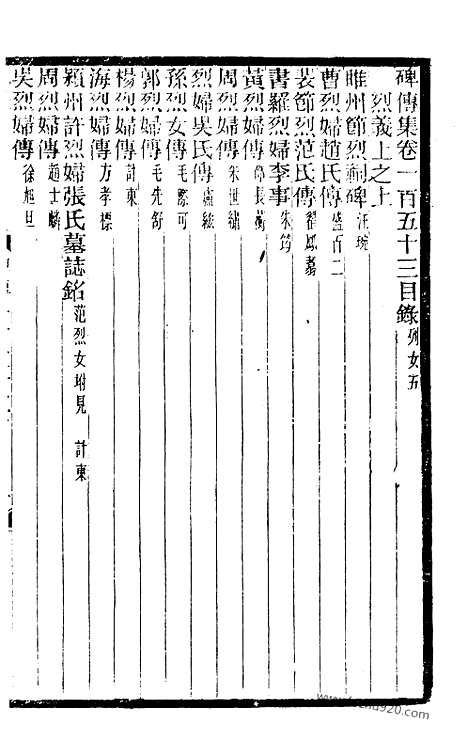 碑傳集卷一百五十三目錄 列女五
烈義上之上
睢州節烈祠碑 汪琬
曹烈婦趙氏傳 盛百二
裴節烈范氏傳 翟鳳翥
書羅烈婦李事 朱筠
黃烈婦傳 長
周烈婦傳 朱世
烈婦吳氏傳 盧絃
孫烈女傳 毛際可
郭烈婦傳 毛先舒
楊烈婦傳 計東
海烈婦傳 方孝標
潁州許烈婦張氏墓誌銘 范烈女坿見 計東
周烈婦傳 趙士麟
吳烈婦傳 徐旭旦